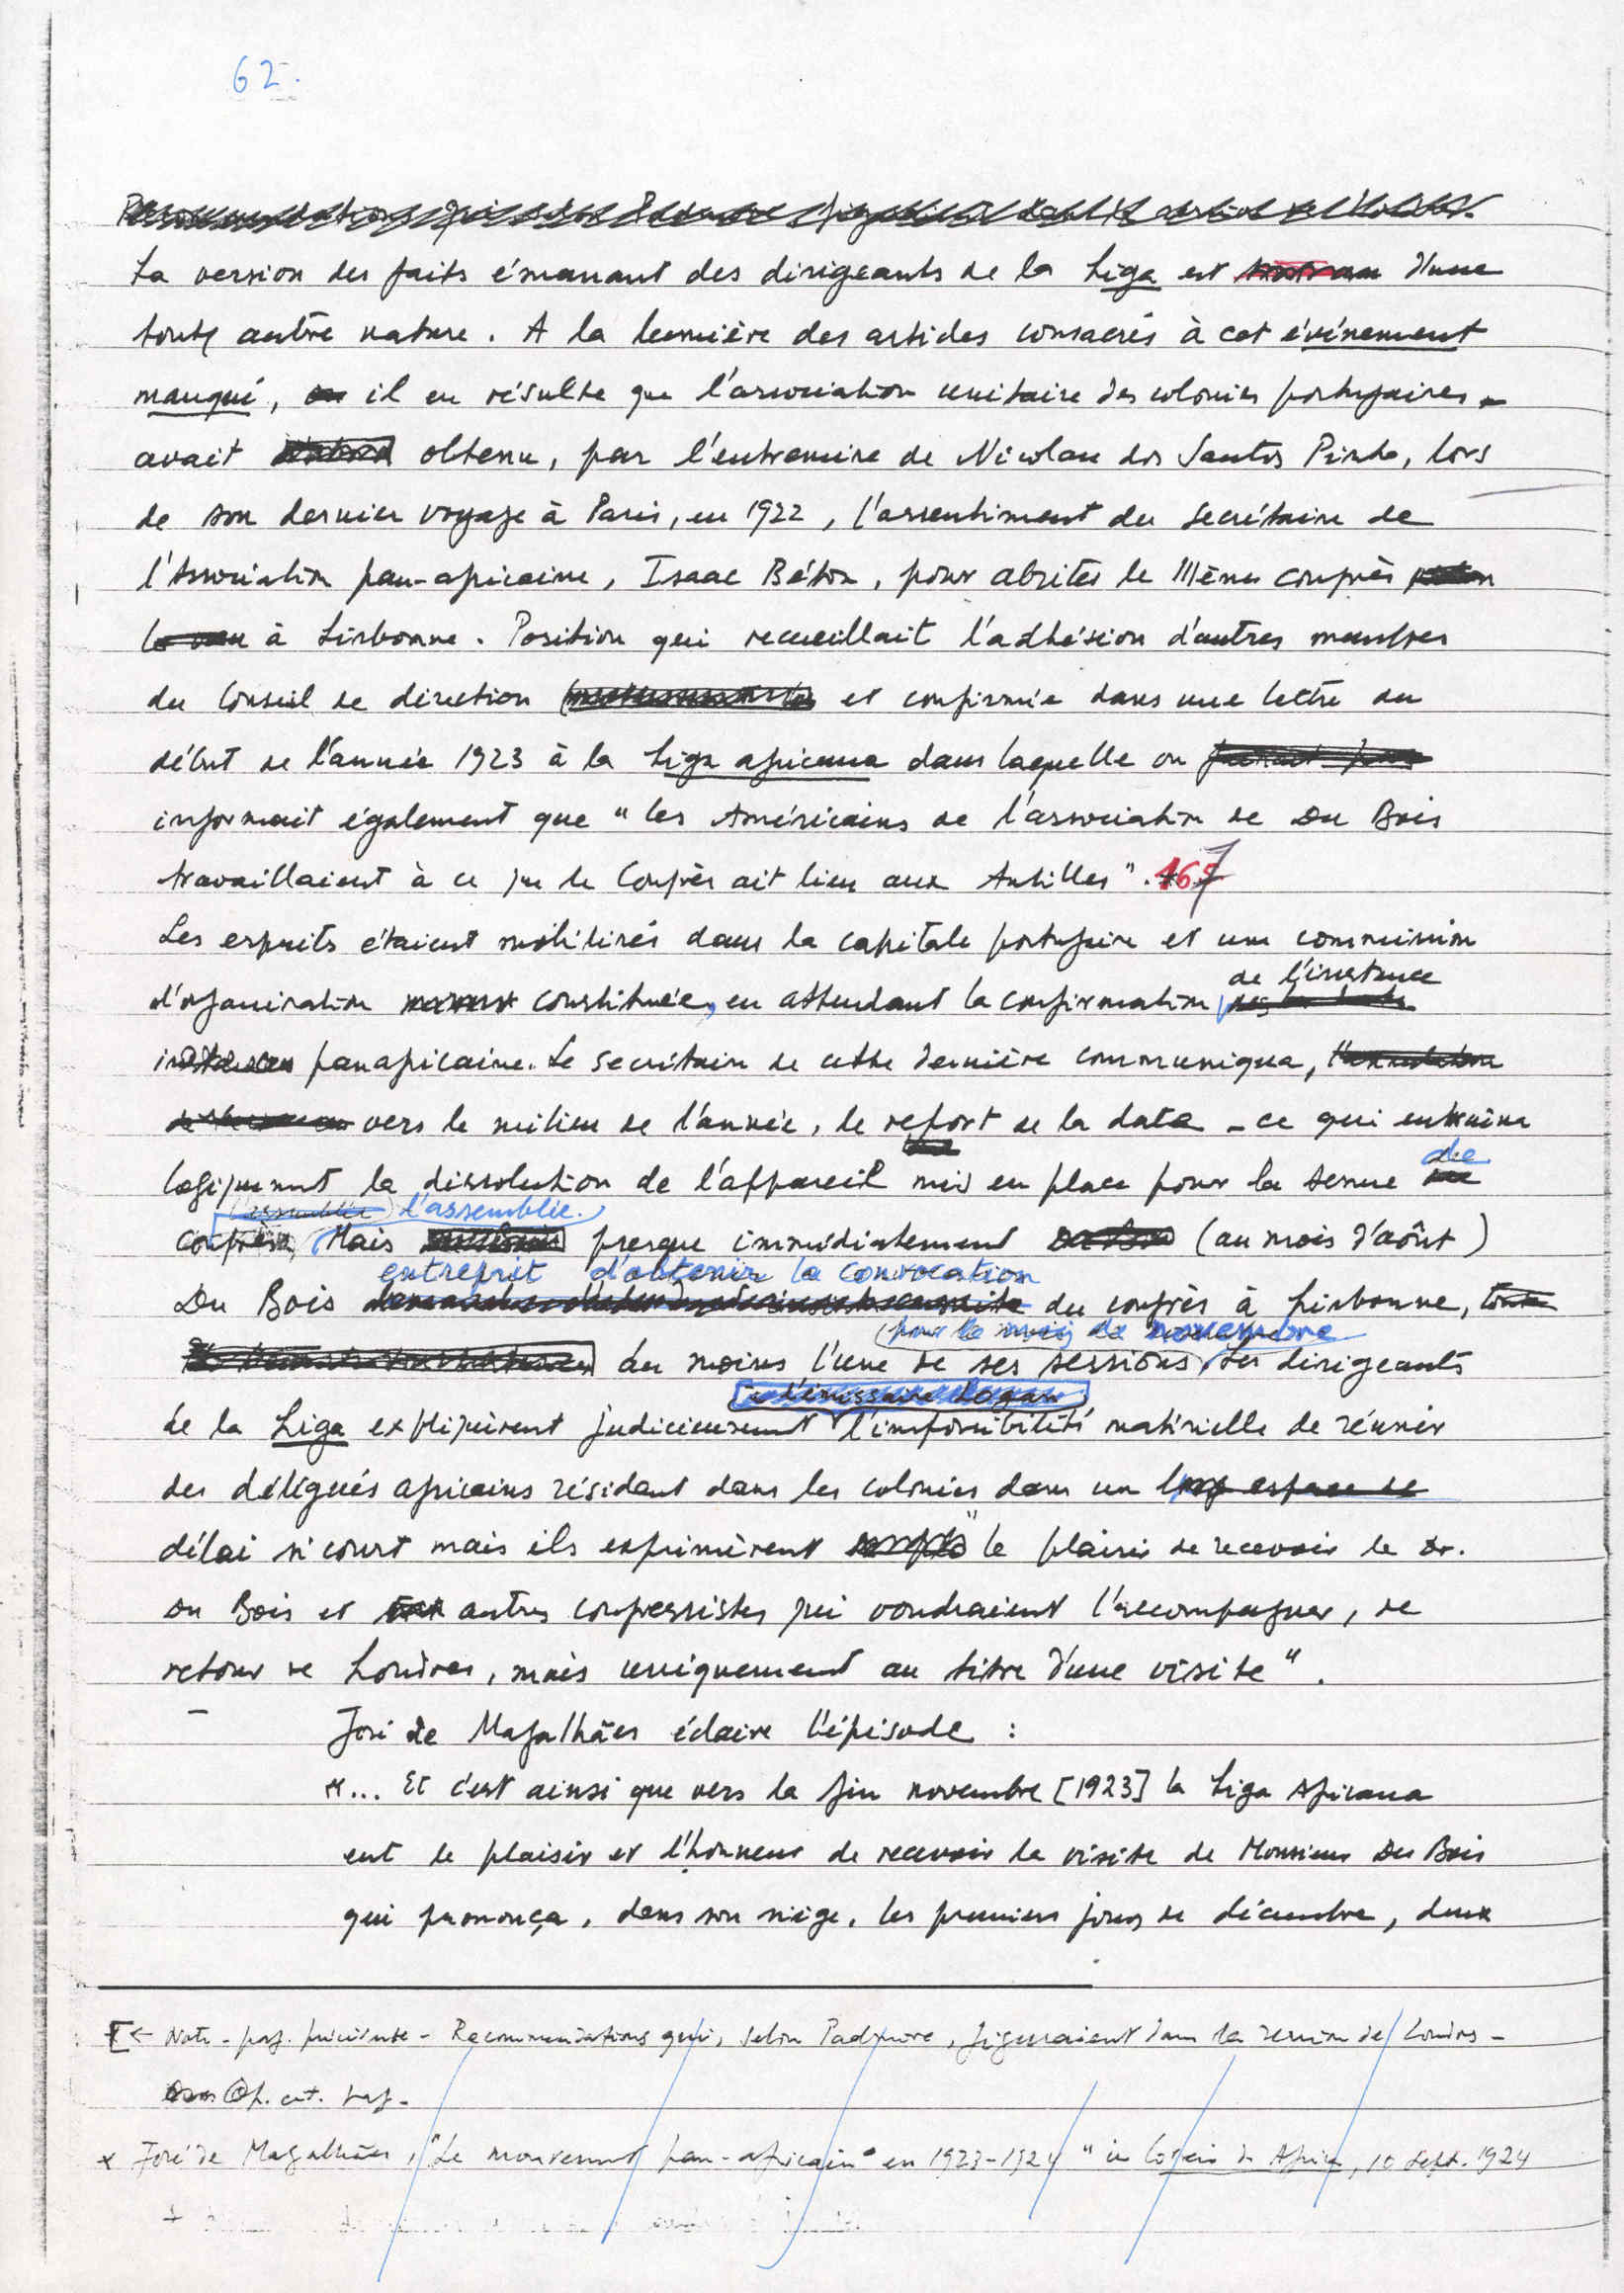 62.
La version des faits émanant des dirigeants de la Liga est d'une
toute autre nature. A la lumière des articles consacrés à cet événement
manqué, il en résulte que l'association unitaire des colonies portugaises
avait obtenu, par l'entremise de Nicolau dos Santos Pinto, lors
de son dernier voyage à Paris, en 1922, l'assentiment du Secrétaire de
l'Association pan-africaine, Isaac Béton, pour abriter le IIIème congrès
à Lisbonne. Position qui recueillait l'adhésion d'autres membres
du Conseil de direction et confirmée dans une lettre du
début de l'année 1923 à la Liga africana dans laquelle on
informait également que "les Américains de l'association de Du Bois
travaillaient à ce que le Congrès ait lieu aux Antilles". 167
Les esprits étaient mobilisés dans la capitale portugaise et une commission
de l'instance
d'organisation constituée, en attendant la confirmation
panafricaine. Le secrétaire de cette dernière communiqua,
vers le milieu de l'année, le report de la date - ce qui entraîna
logiquement la dissolution de l'appareil mis en place pour la tenue de
l'assemblée.
congrès, Mais presque immédiatement (au mois d'août)
entreprit d'obtenir la convocation
Du Bois du congrès à Lisbonne,
(pour le mois de novembre
du moins l'une de ses sessions, Les dirigeants
à l'émissaire Logan
de la Liga expliquèrent judicieusement l'impossibilité matérielle de réunir
des délégués africains résidant dans les colonies dans un long espace de
délai si court mais ils exprimèrent "le plaisir de recevoir le Dr.
Du Bois et autres congressistes qui voudraient l'accompagner, de
retour de Londres, mais uniquement au titre d'une visite".
José de Magalhães éclaire l'épisode :
"... Et c'est ainsi que vers la fin novembre [1923] la Liga Africana
eut le plaisir et l'honneur de recevoir la visite de Monsieur Du Bois
qui prononça, dans son siège, les premiers jours de décembre, deux
[← Note - pag. précédente - Recommandations qui, selon Padmore, figuraient dans la session de Londres -
Op. cit. pag.
x José de Magalhães, "Le mouvement pan-africain en 1923-1924" in Correio de Africa, 10 Sept. 1924